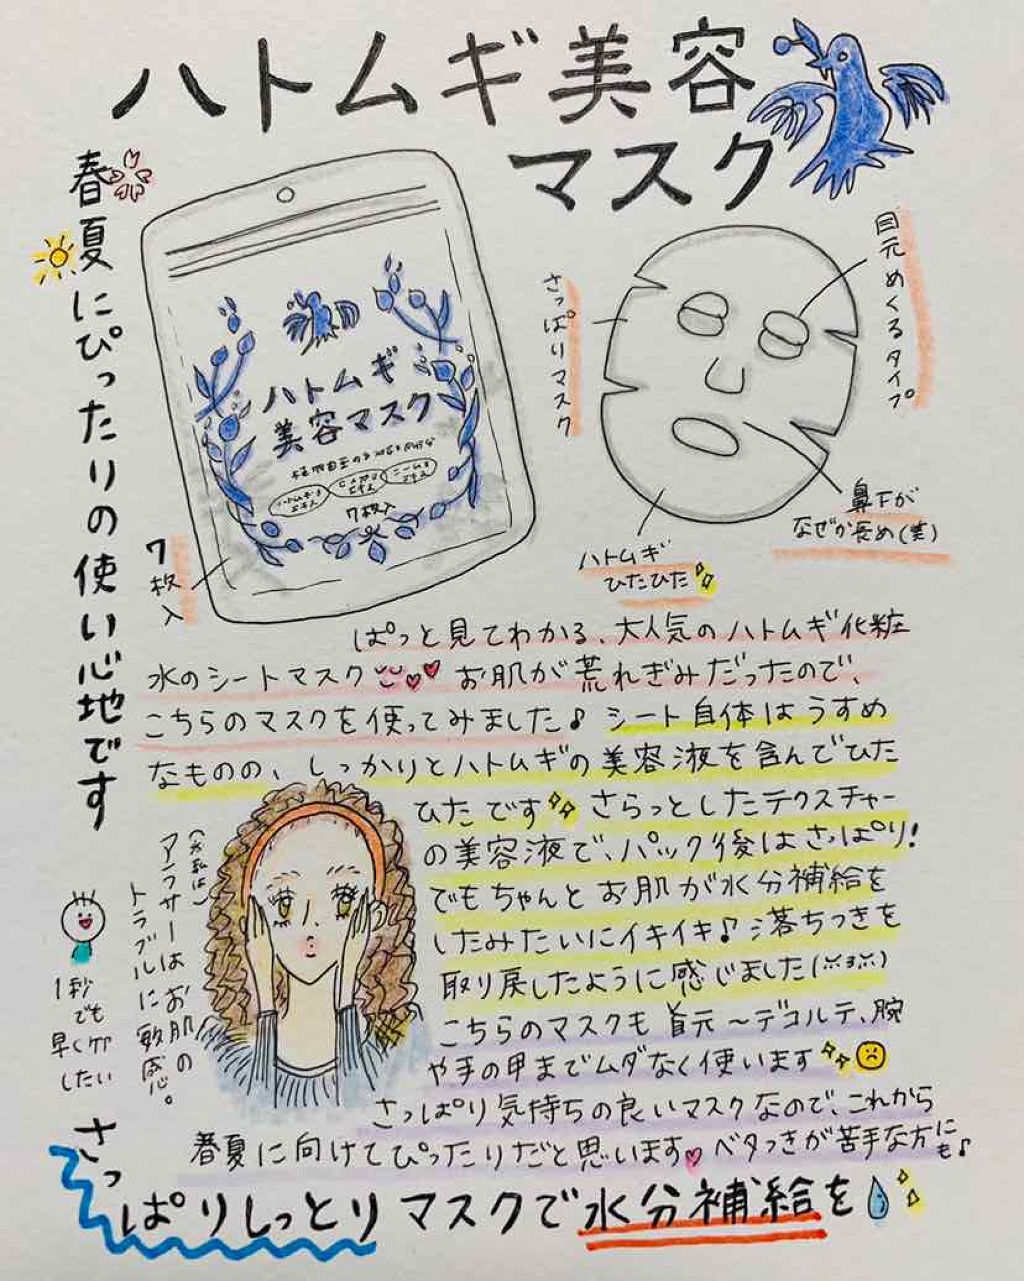 ハトムギ美容
マスク
春夏にぴったりの使い心地です
ハトムギ
美容マスク
ハトムギ
エキス
7枚入
7枚入
さっぱりマスク
目元めくるタイプ
鼻下が
なぜか長め(笑)
ハトムギ
ひたひた
ぱっと見てわかる、大人気のハトムギ化粧
水のシートマスク お肌が荒れぎみだったので、
こちらのマスクを使ってみました♪ シート自体はうすめ
なものの、しっかりとハトムギの美容液を含んでひた
ひたです さらっとしたテクスチャー
の美容液で、パック後はさっぱり!
でもちゃんとお肌が水分補給を
したみたいにイキイキ♪落ちつきを
取り戻したように感じました
こちらのマスクも首元〜デコルテ、腕
や手の甲までムダなく使います
さっぱり気持ちの良いマスクなので、これから
春夏に向けてぴったりだと思います ベタつきが苦手な方にも♪
アラサーはお肌の
トラブルに敏感。
1秒
でも
早くケア
したい
さっぱりしっとりマスクで水分補給を